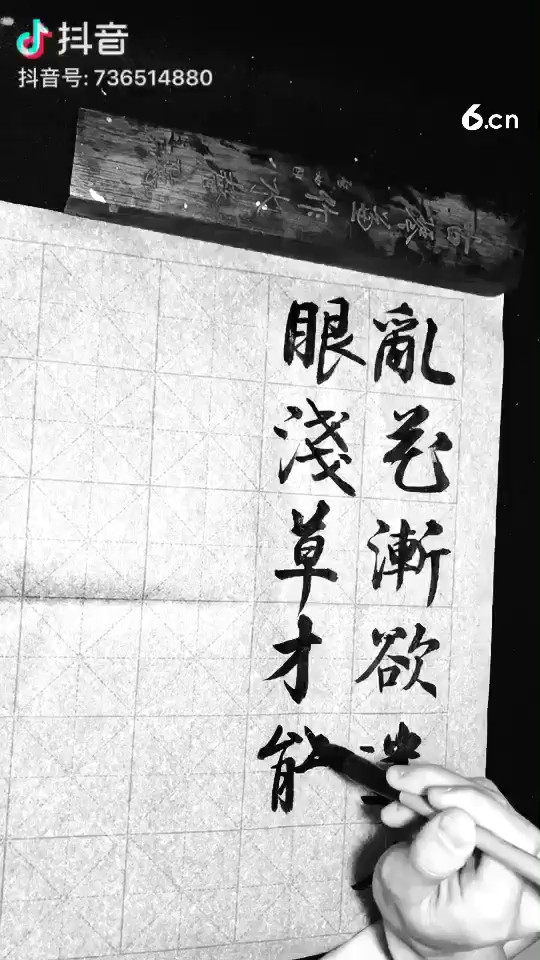 抖音
抖音号: 736514880
6.cn
亂花漸欲
眼淺草才能